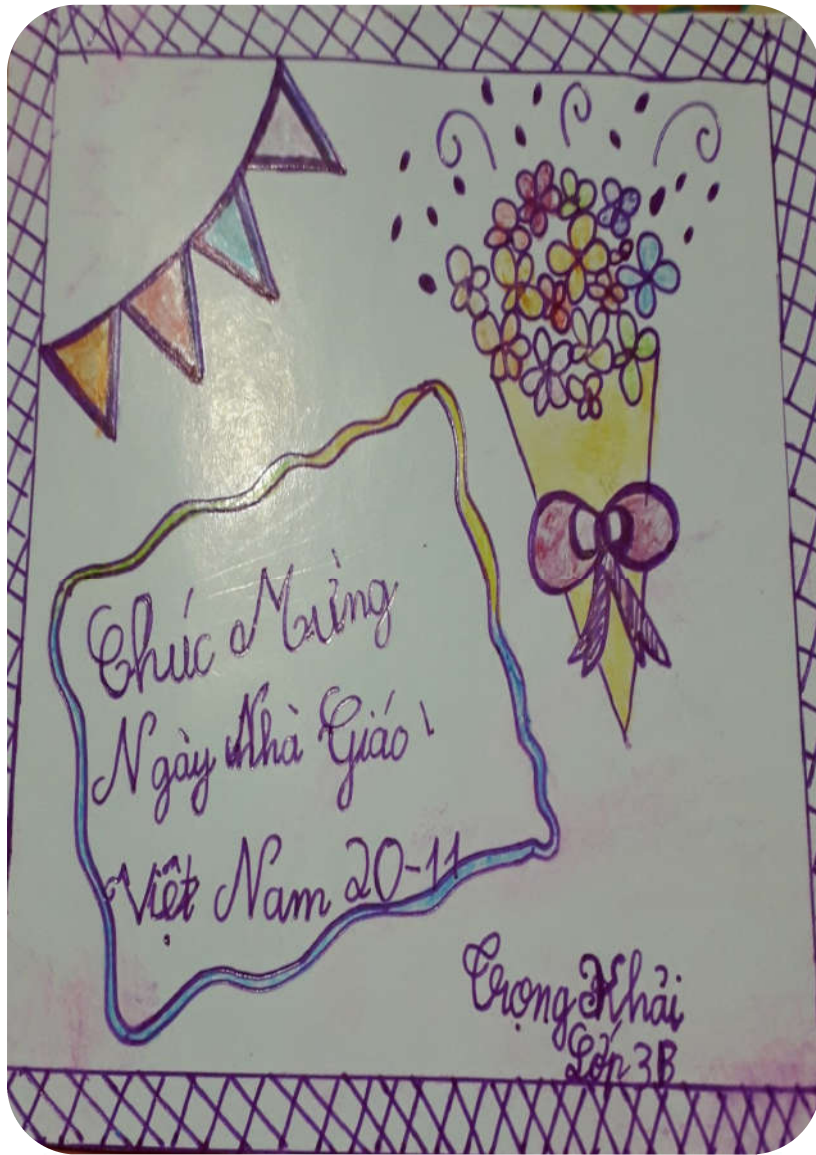 Chúc Mừng
Ngày Nhà Giáo
Việt Nam 20-11
Trọng Khải
Lớp 3B